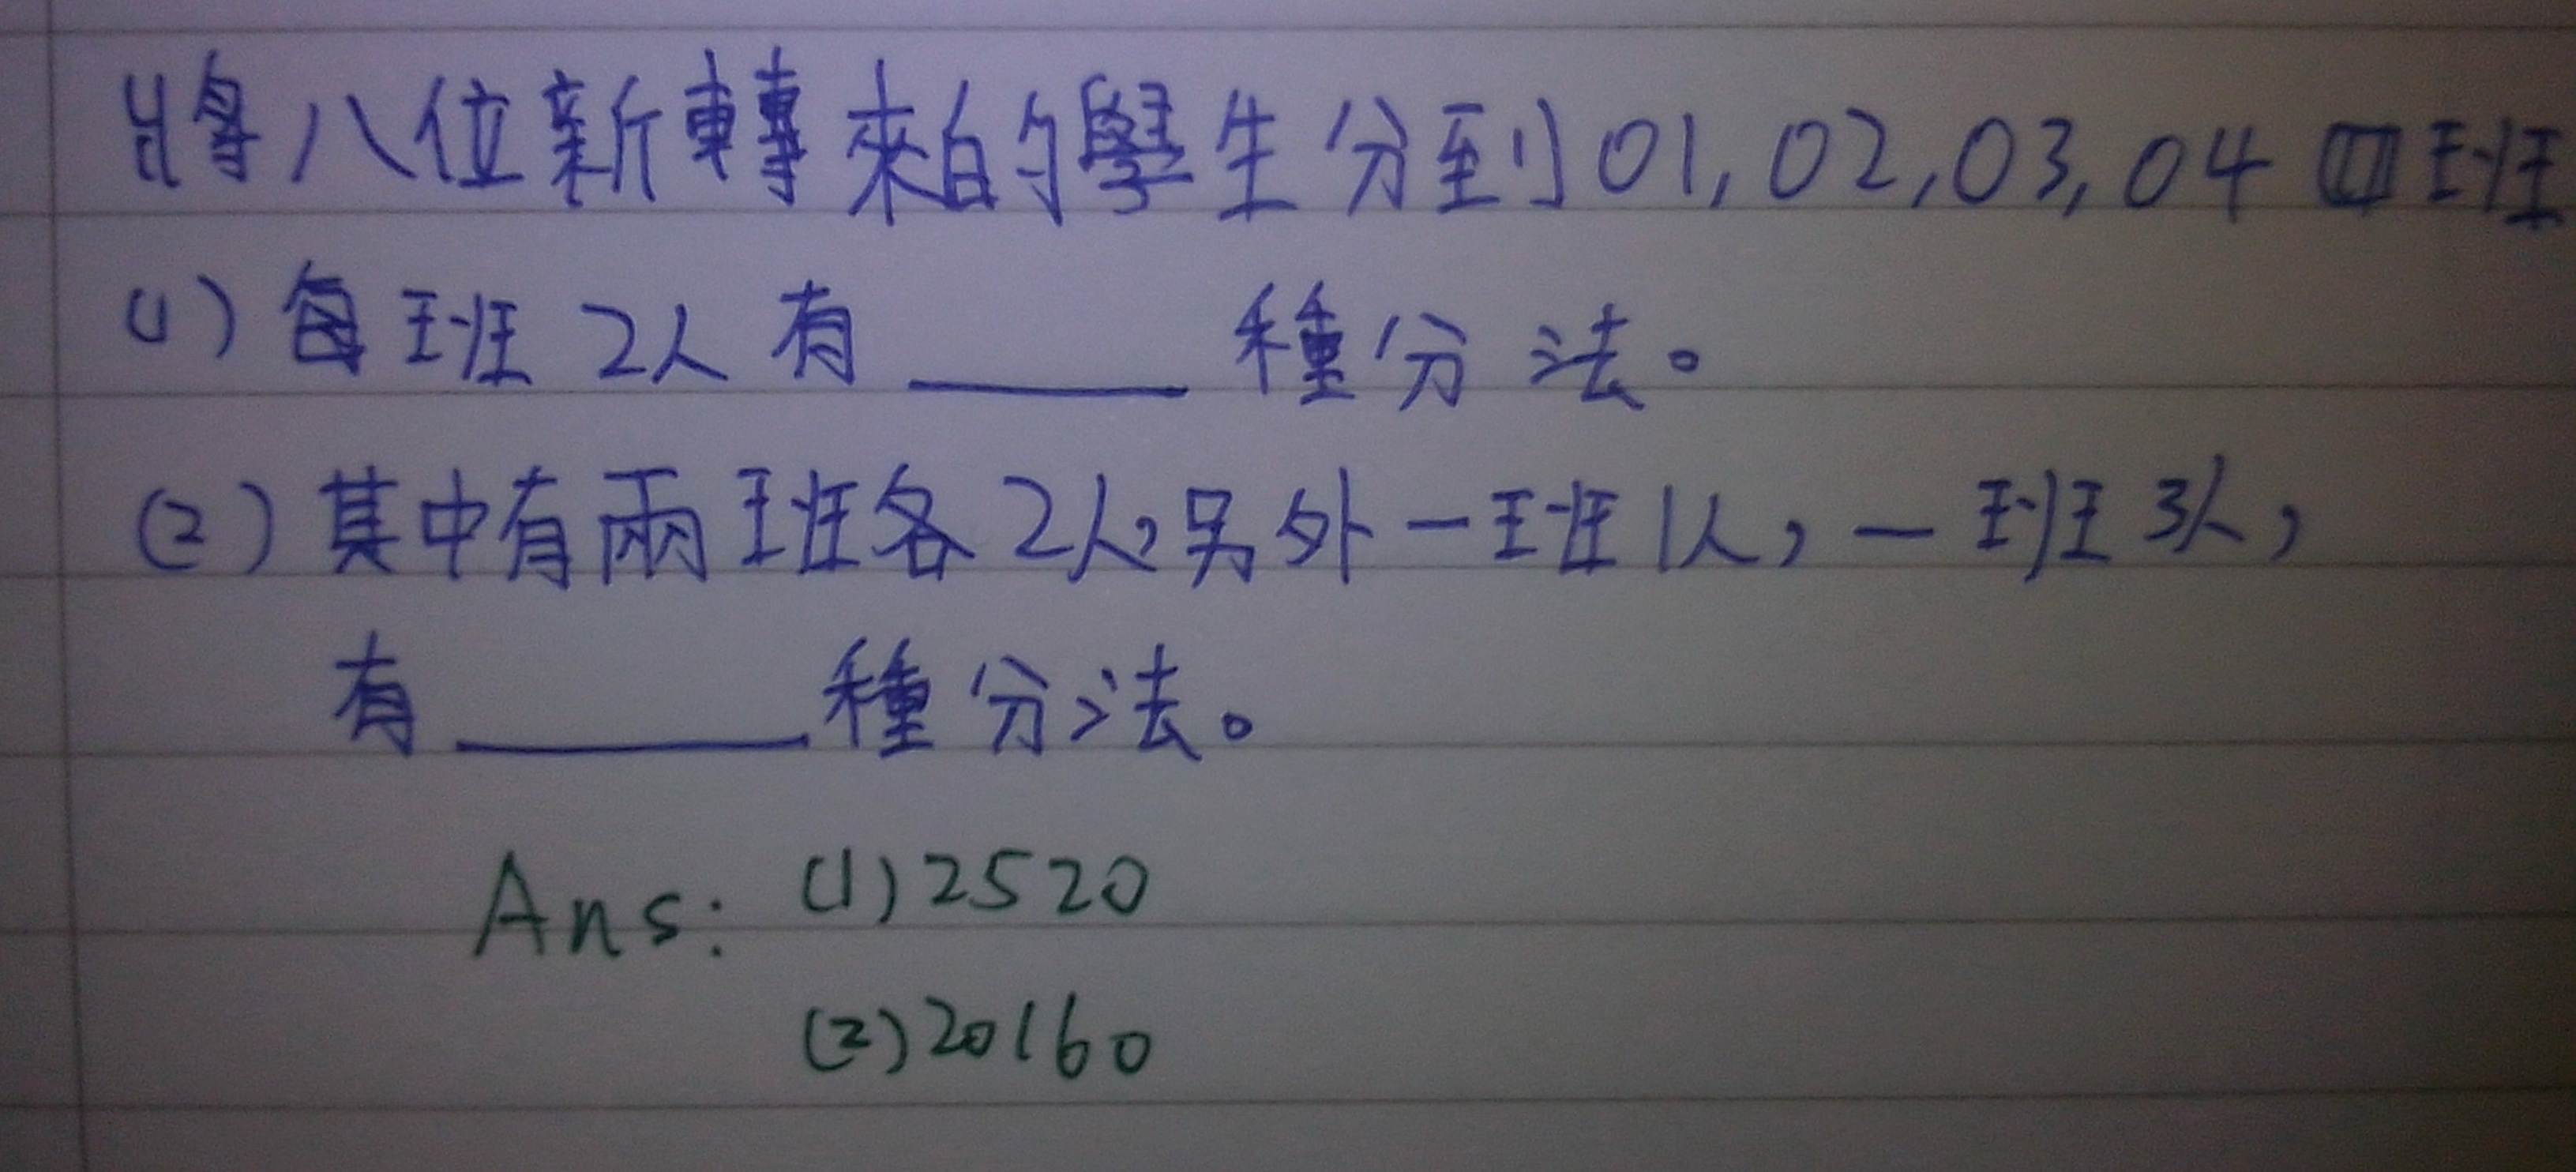 將八位新轉來的學生分到01,02,03,04四班
(1)每班2人有______種分法。
(2)其中有兩班各2人,另外一班1人,一班3人,
有______種分法。
Ans: (1)2520
(2)20160